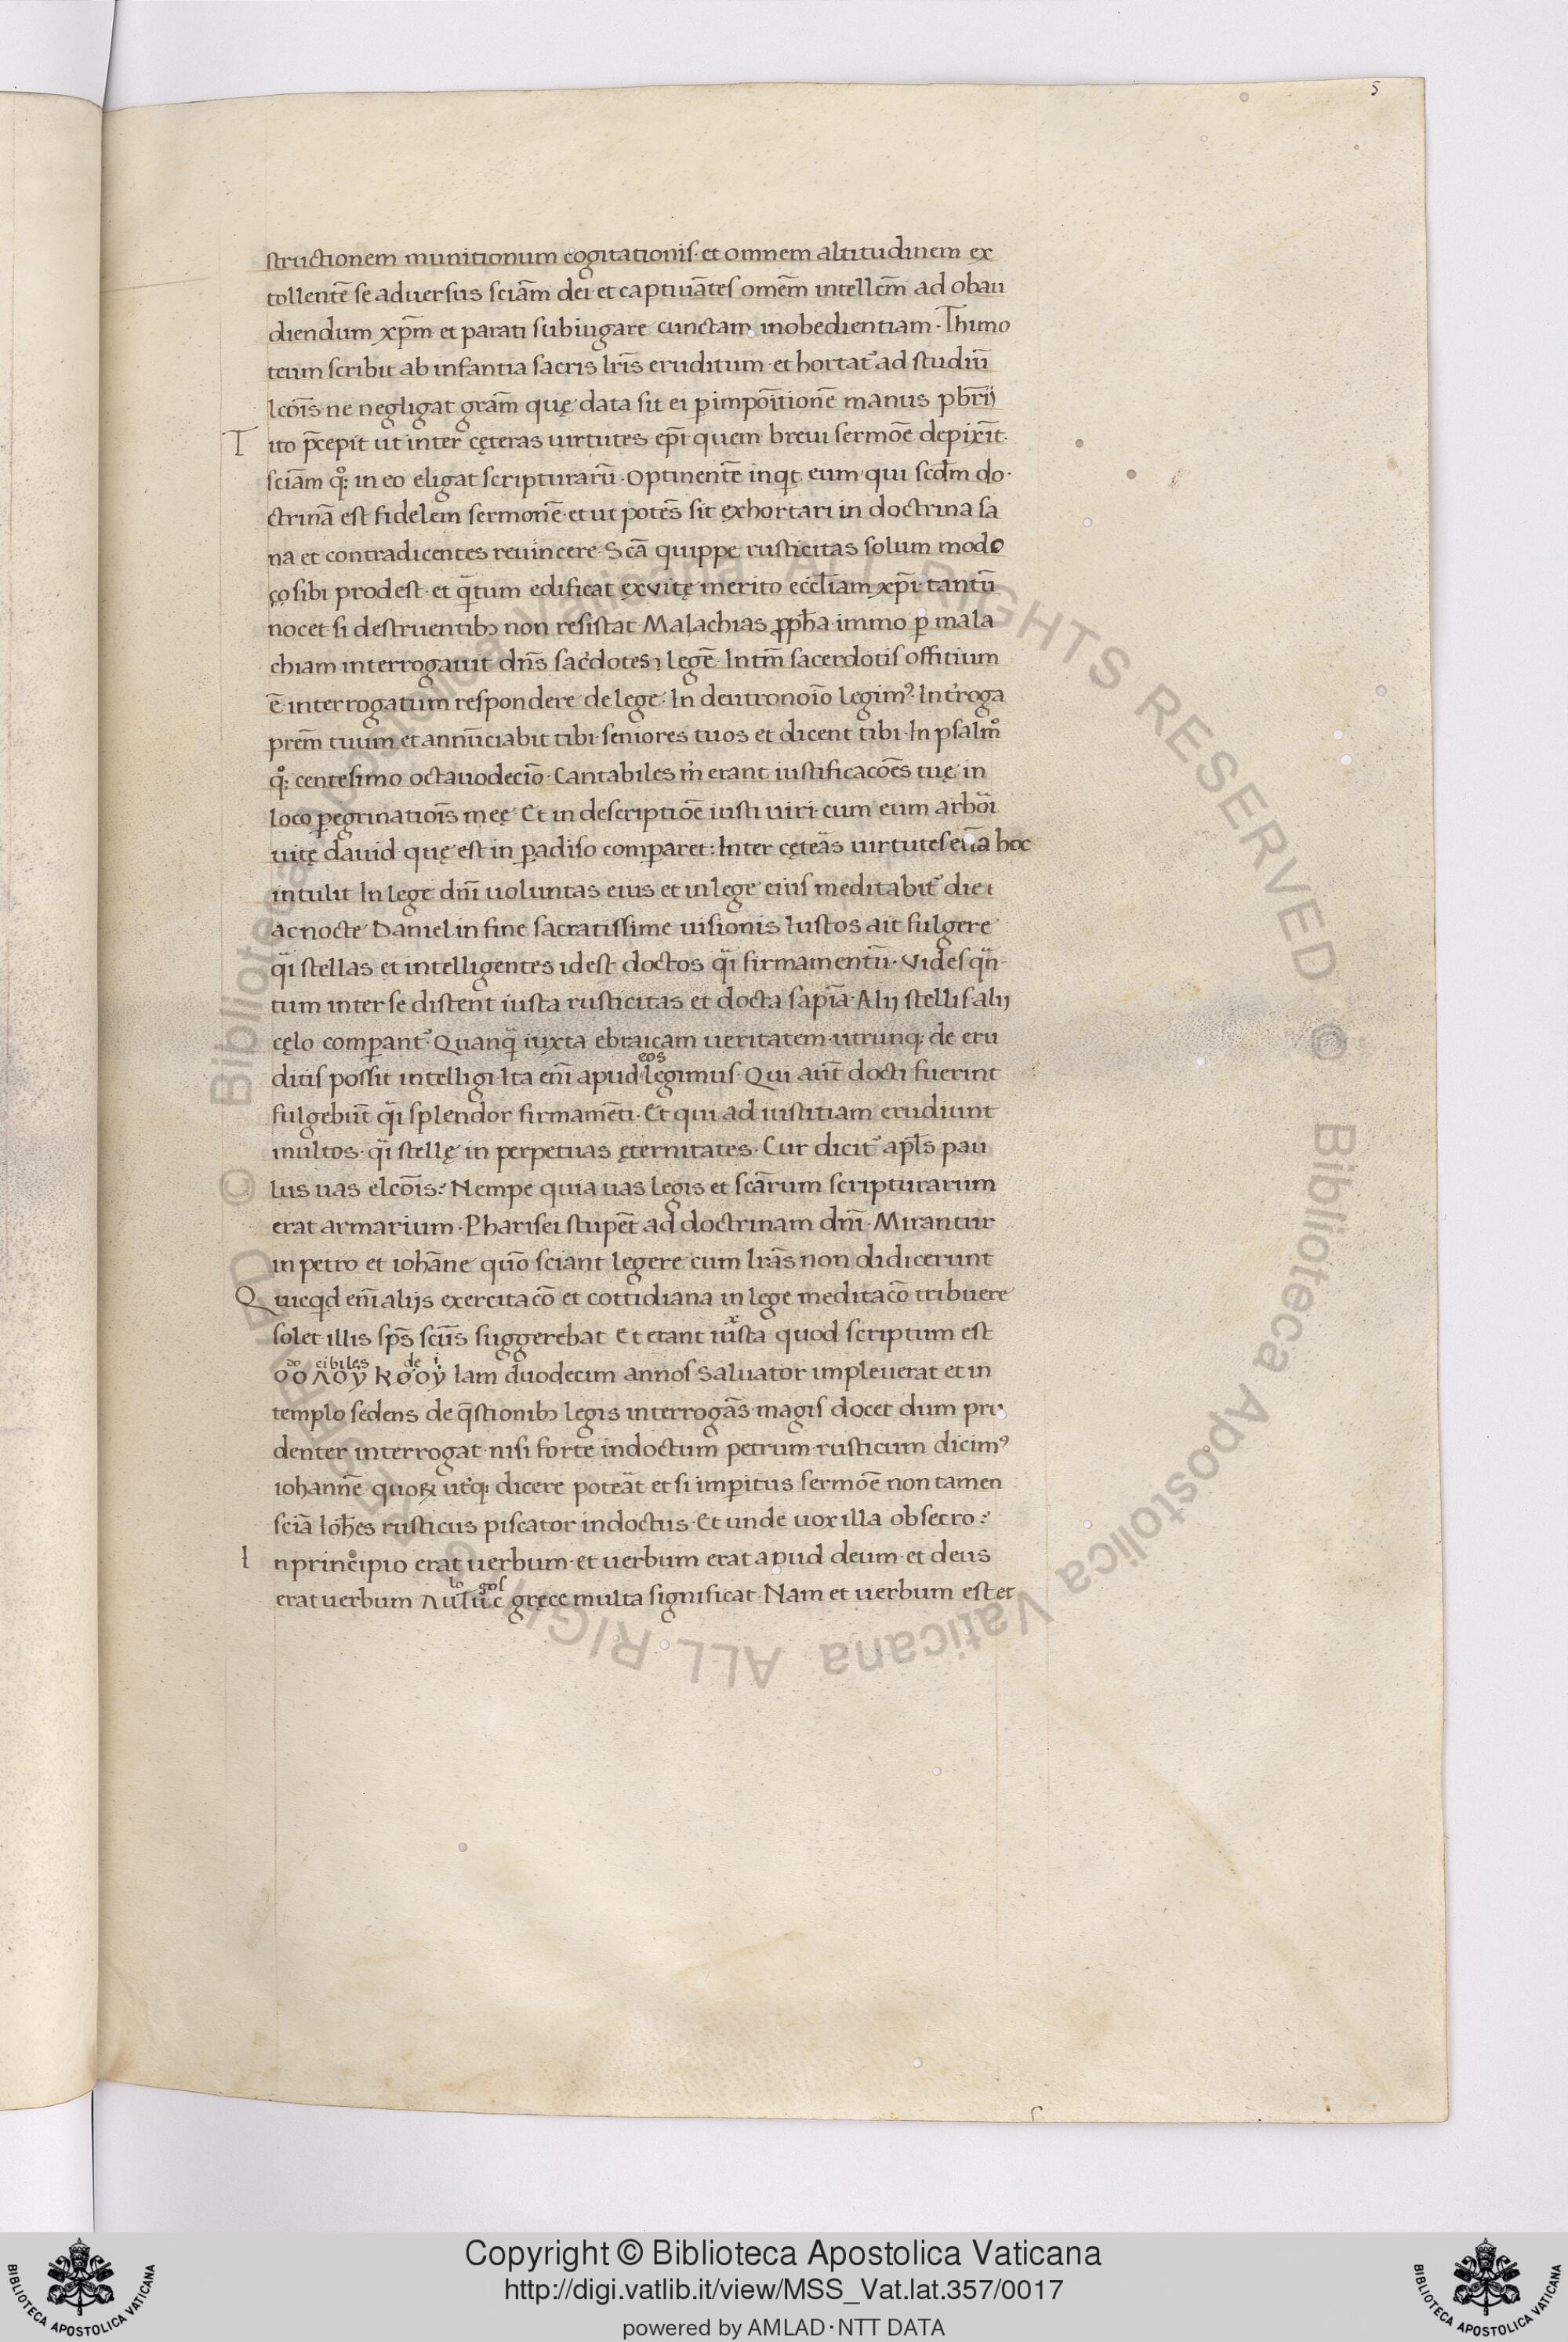 5
structionem munitionum cogitationis· et omnem altitudinem ex
tollentē se aduersus sciām dei· et captiuātes omēm intellcm̄ ad obau
diendum xp̄m· et parati subiugare cunctam inobedientiam· Thimo
teum scribit ab infantia sacris lrīs eruditum· et hortat᷒ ad studiū
lcōis· ne negligat grām quę data sit ei ꝑ impōitionē manus pbrīj
Tito p̄cepit ut inter cęteras uirtutes epī· quem breui sermōe depixīt·
sciām qͦ: in eo eligat scripturarū· Optinentē inqͥt eum qui scdm̄ do·
ctrinā est fidelem sermonē· et ut potēs sit exhortari in doctrina sa
na et contradicentes reuincere· Scā quippe rusticitas solum modo
ço sibi prodest· et qͣtum edificat ex vitę merito eccl̄iam xp̄i· tantū
nocet· si destruentibꝫ non resistat Malachias ꝓph̄a· immo ꝑ mala
chiam interrogauit dn̄s sac̓dotes ⁊ legē· In tm̄ sacerdotis offitium
ē· interrogatum respondere de lege· In deutronoīo legim᷒· Int̓roga
prēm tuum et annūciabit tibi· seniores tuos et dicent tibi· In psalmͦ
qͦ: centesimo octauodecīo· Cantabiles m̍ erant iustificacōēs tuę in
loco ꝑegrinatiōis meę· Et in descriptiōe iusti uiri· cum eum arboͣi
uitę dauid· quę est in ꝑadiso comparet: Inter cęteͣs uirtutes etīā hoc
intulit In lege dn̄i uoluntas eius et in lege eius meditabit᷒ die
ac nocte· Daniel in fine sacratissime uisionis Iustos ait fulgere
qͣi stellas et intelligentes idest doctos qͣi firmamentū· Vides qͣn-
tum inter se distent iusta rusticitas et docta sapīa· Alij stellis alij
cęlo comꝑant᷒· Quanqͣ iuxta ebraicam ueritatem· utrunq: de eru
ditis possit intelligi· Ita enī apud eos legimus· Qui aūt docti fuerint
fulgebūt qͣi splendor firmamēti· Et qui ad iustitiam erudiunt
multos· qͣi stellę in perpetuas ęternitates· Cur dicit᷒ apl̄s pau
lus uas elcōis? Nempe quia uas legis et scārum scripturarum
erat armarium· Pharisei stupēt ad doctrinam dn̄i· Mirantur
in petro et iohāne quō sciant legere cum lrās non didicerunt
Quicqͥd enī alijs exercitacō et cottidiana in lege meditacō tribuere
solet illis sp̄s scūs suggerebat Et erant iuxͣta quod scriptum est
do cibiles de i
οολογ κσογ Iam duodecim annos saluator impleuerat et in
templo sedens de q̄stionibꝫ legis interrogās· magis docet dum pru
denter interrogat· nisi forte indoctum petrum· rusticum dicim᷒
iohannē quoꝝ ut̓q: dicere poteͣt et si imꝑitus sermōe non tamen
sciā Ioh̄es rusticus piscator indoctus· Et unde uox illa obsecro?
In principio erat uerbum· et uerbum erat apud deum· et deus
lo gos
erat uerbum grece multa significat· Nam et uerbum est et
© Biblioteca Apostolica Vaticana ALL RIGHTS RESERVED
Copyright © Biblioteca Apostolica Vaticana
http://digi.vatlib.it/view/MSS_Vat.lat.357/0017
powered by AMLAD·NTT DATA
BIBLIOTECA APOSTOLICA VATICANA
BIBLIOTECA APOSTOLICA VATICANA